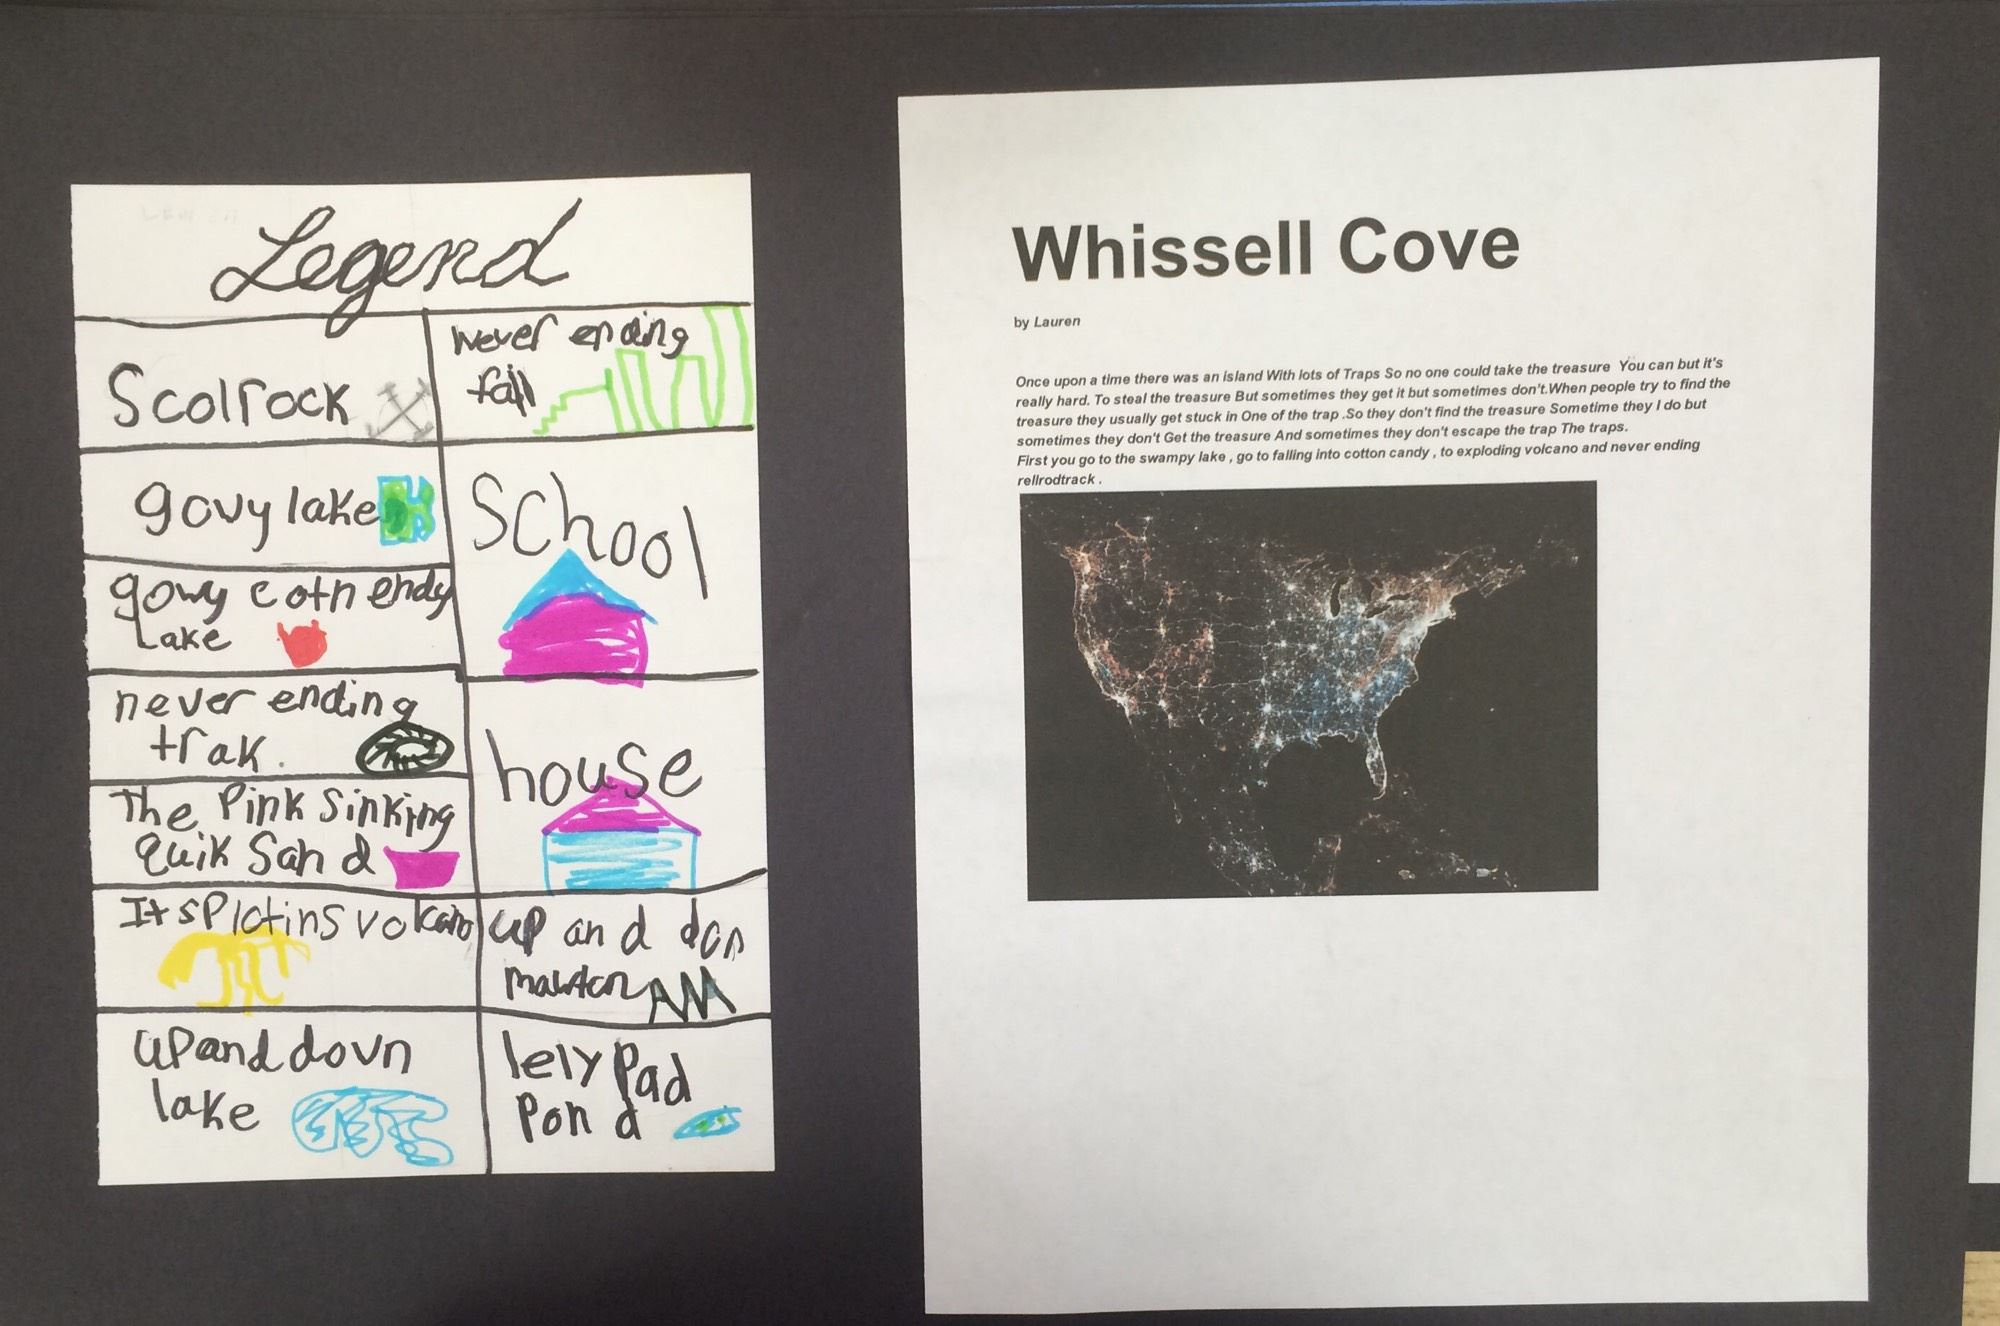 Legend
Scolrock
govy lake
gowy cotn endy
Lake
never ending
trak.
The Pink Sinking
quik Sand
It sPlotins volcano
upand down
lake
Never ending
fall
School
house
up and don
mawten
lely Pad
Pond
Whissell Cove
by Lauren
Once upon a time there was an island With lots of Traps So no one could take the treasure You can but it's
really hard. To steal the treasure But sometimes they get it but sometimes don't.When people try to find the
treasure they usually get stuck in One of the trap .So they don't find the treasure Sometime they I do but
sometimes they don't Get the treasure And sometimes they don't escape the trap The traps.
First you go to the swampy lake , go to falling into cotton candy , to exploding volcano and never ending
rellrodtrack .